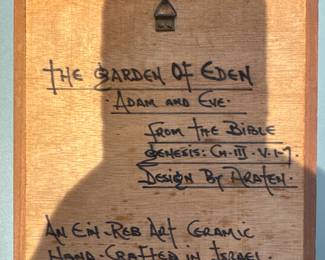 THE GARDEN OF EDEN
· ADAM AND EVE ·
FROM THE BIBLE
GENESIS: CH-III - V. 1-7
DESIGN BY ARATEN.
AN EIN-REB ART CERAMIC
HAND-CRAFTED IN ISRAEL